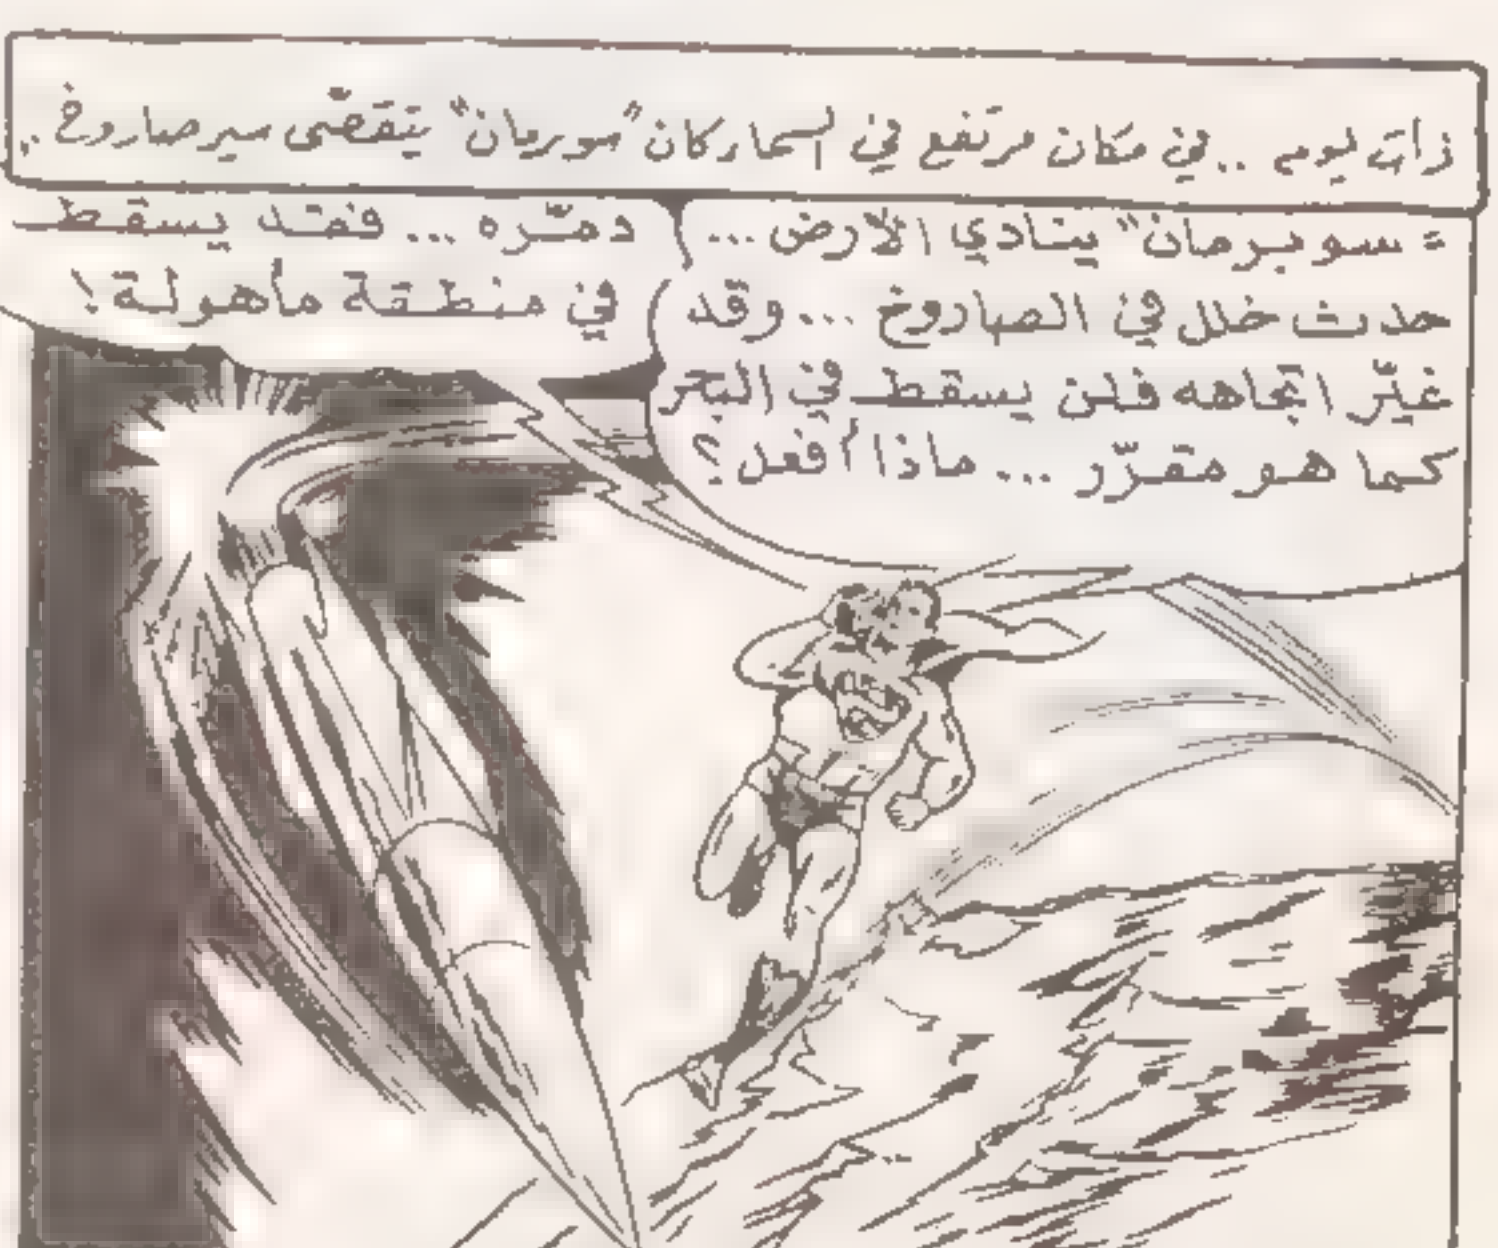 ذات يوم .. في مكان مرتفع في السماء كان "سوبرمان" يتقصّى سير صاروخ ..
= سوبرمان" ينادي الأرض ...
حدث خلل في الصاروخ ... وقد
غيّر اتجاهه فلن يسقط في البحر
كما هو مقرّر ... ماذا أفعل ؟
دمّره ... فقد يسقط
في منطقة مأهولة !